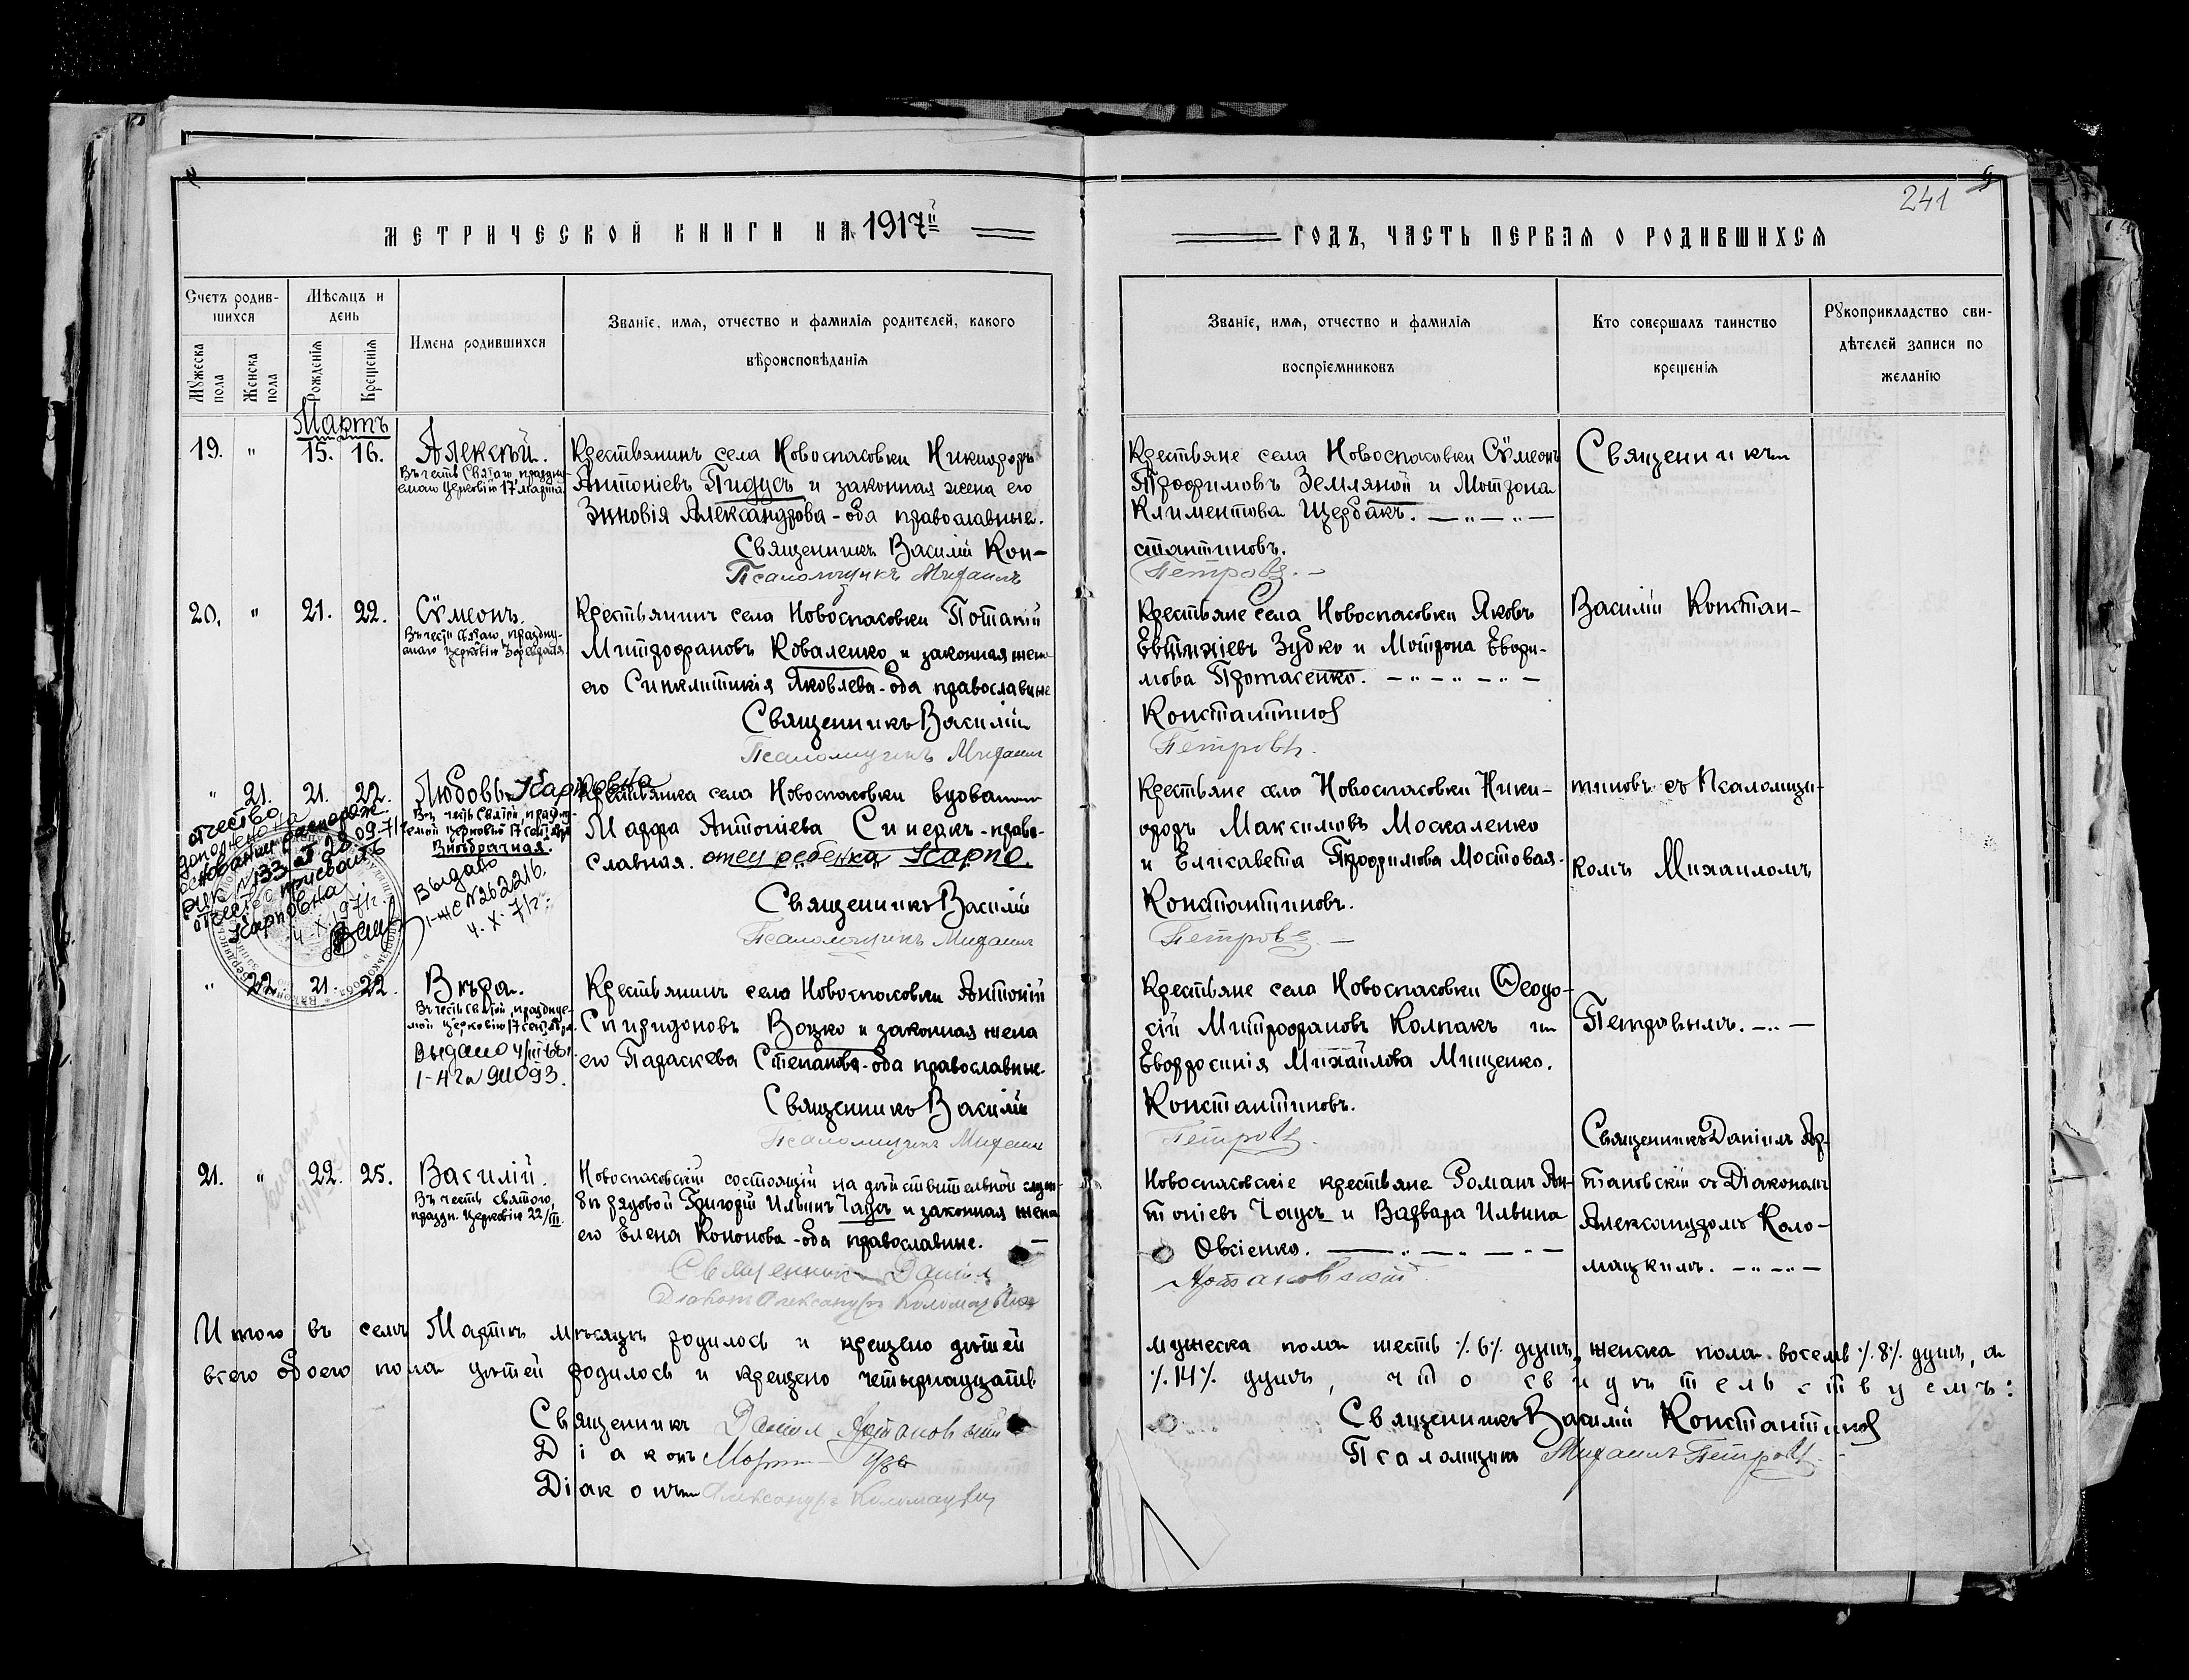 241
МЕТРИЧЕСКОЙ КНИГИ НА 1917й
ГОДЪ, ЧАСТЬ ПЕРВАЯ О РОДИВШИХСЯ
Счетъ родив-
шихся
Мѣсяцъ и
день
Мужеска пола
Женска пола
Рожденія
Крещенія
Имена родившихся
Званіе, имя, отчество и фамилія родителей, какого
вѣроисповѣданія
Званіе, имя, отчество и фамилія
воспріемниковъ
Кто совершалъ таинство
крещенія
Рукоприкладство сви-
дѣтелей записи по
желанію
Мартъ
19. " 15. 16. Алексѣй.
Въ честь Святаго, праздну-
емаго Церковію 17 марта.
Крестьянинъ села Новоспасовки Никифоръ
Антоніевъ Гидусъ и законная жена его
Зиновія Александрова - оба православные.
Священникъ Василій Кон-
Псаломщикъ Михаилъ
Крестьяне села Новоспасовки Сѵмеонъ
Трофимовъ Земляной и Мотрона
Климентова Щербакъ.
стантиновъ.
Петровъ.
Священникъ
20. " 21. 22. Сѵмеонъ.
Крестьянинъ села Новоспасовки Потапій
Митрофановъ Коваленко и законная жена
его Синклитикія Яковлева - оба православные
Священникъ Василій
Псаломщикъ Михаилъ
Крестьяне села Новоспасовки Яковъ
Евтихіевъ Зубко и Мотрона Евфи-
мова Протасенко.
Константинов
Петровъ.
Василій Констан-
" 21. 21. 22. Любовь Карповна
Въ честь Святой, праздну-
емой Церковію 17 сент.
Внѣбрачная.
Выдано
I-ЖС №262216.
4.X.71г.
отчество
дополнена на
основании распоряж
№133 от 28.09.71г
отчество присвоить
Карповна
4.X.1971г.
Крестьянка села Новоспасовки вдова
Марфа Антоніева Синегкъ - право-
славная. отец ребенка Карпо.
Священникъ Василій
Псаломщикъ Михаилъ
Крестьяне села Новоспасовки Ники-
форъ Максимовъ Москаленко
и Елисавета Трофимова Мостовая.
Константиновъ.
Петровъ.
тиновъ съ Псаломщи-
комъ Михаиломъ
" 22. 21. 22. Вѣра.
Въ честь Святой, празднуе-
мой Церковію 17 сентября.
Выдано 4/III 66г.
Крестьянинъ села Новоспасовки Антоній
Спиридоновъ Воцко и законная жена
его Параскева Степанова - оба православные.
Священникъ Василій
Псаломщикъ Михаилъ
Крестьяне села Новоспасовки Ѳеодо-
сій Митрофановъ Колпакъ и
Евфросинія Михайлова Мищенко.
Константиновъ.
Петровъ.
Петровымъ.
21. " 22. 25. Василій.
Въ честь святого,
праздн. Церковію 22/III.
Новоспасовскій состоящій на дѣйствительной служ-
бѣ рядовой Григорій Ильинъ Чаусъ и законная жена
его Елена Кононова - оба православные.
Священникъ Даніил
Діаконъ Александръ Коломацкій
Новоспасовскіе крестьяне Романъ Ан-
тоніевъ Чаусъ и Варвара Ильина
Овсіенко.
Артановскій
Священникъ Даніилъ Ар-
тановскій съ Діакономъ
Александромъ Коло-
мацкимъ.
Итого въ семъ Мартѣ мѣсяцѣ родилось и крещено дѣтей мужеска пола шесть ٪6٪ душъ, женска пола восемь ٪8٪ душъ, а
всего обоего пола дѣтей родилось и крещено четырнадцать ٪14٪ душъ, что свидѣтельствуемъ:
Священникъ Даніил Артановскій
Діаконъ
Діаконъ Александръ Коломацкій
Священникъ Василій Константинов
Псаломщикъ Михаилъ Петровъ